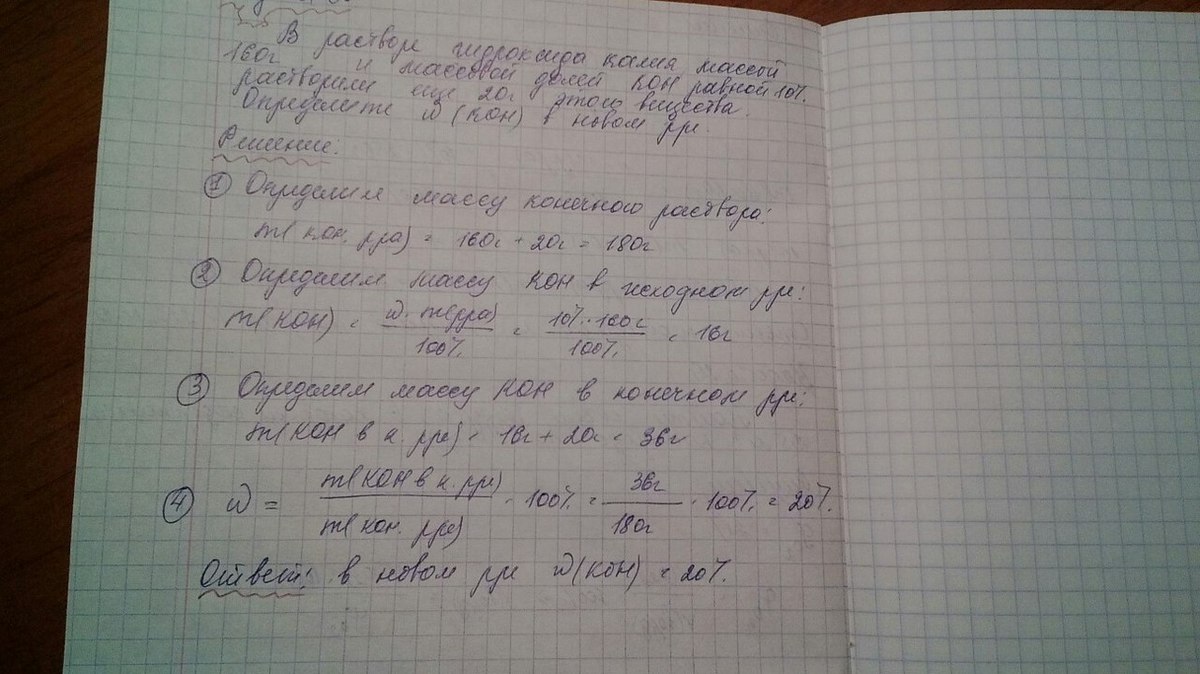 В растворе гидроксида калия массой
160г и массовой долей КОН равной 10%
растворили еще 20г этого вещества.
Определите w (КОН) в новом р-ре.
Решение:
① Определим массу конечного раствора:
m( кон. р-ра) = 160г + 20г = 180г
② Определим массу КОН в исходном р-ре:
m(КОН) = w · m(р-ра) / 100% = 10% · 160г / 100% = 16г
③ Определим массу КОН в конечном р-ре:
m(КОН в к. р-ре) = 16г + 20г = 36г
④ w = m(КОН в к. р-ре) / m(кон. р-ре) · 100% = 36г / 180г · 100% = 20%.
Ответ: в новом р-ре w(КОН) = 20%.